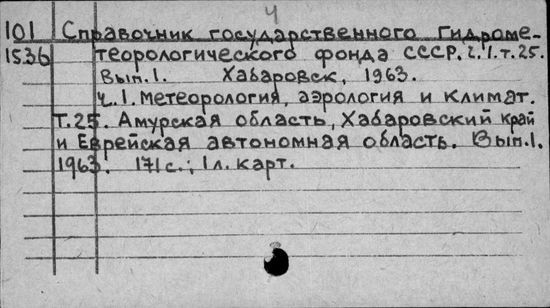 4
101 Справочник государственного Гидроме-
1536 теорологического фонда СССР. Ч.1. т.25.
Вып.1. Хабаровск, 1963.
Ч.1. Метеорология, аэрология и климат.
Т.25. Амурская область, Хабаровский край
и Еврейская автономная область. Вып.1.
1963. 171 с.; 1 л. карт.